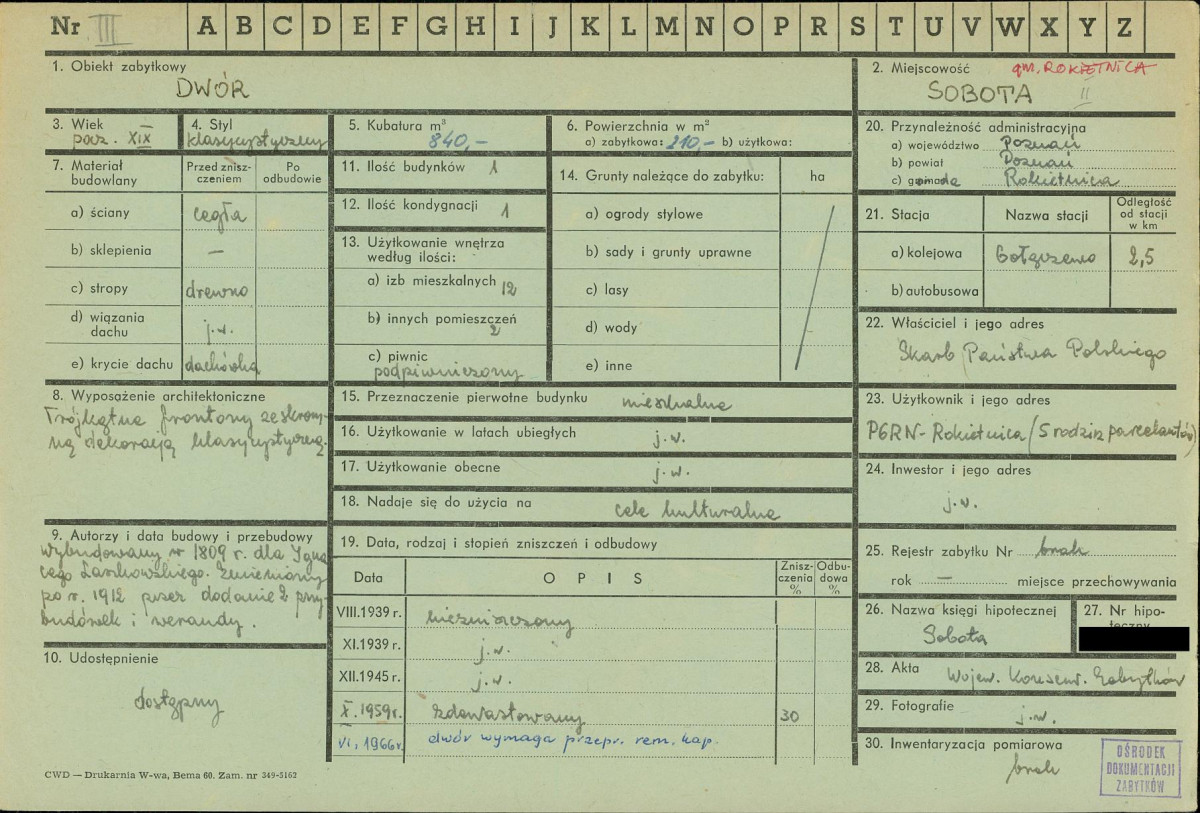 Nr III A B C D E F G H I J K L M N O P R S T U V W X Y Z
1. Obiekt zabytkowy
DWÓR
2. Miejscowość gm. ROKIETNICA
SOBOTA II
3. Wiek
pocz. XIX
4. Styl
klasycystyczny
5. Kubatura m³
840,-
6. Powierzchnia w m²
a) zabytkowa: 210,- b) użytkowa:
20. Przynależność administracyjna
a) województwo Poznań
b) powiat Poznań
c) gmina Rokietnica
7. Materiał budowlany
Przed zniszczeniem
Po odbudowie
a) ściany cegła
b) sklepienia —
c) stropy drewno
d) wiązania dachu j.w.
e) krycie dachu dachówka
11. Ilość budynków 1
12. Ilość kondygnacji 1
13. Użytkowanie wnętrza
według ilości:
a) izb mieszkalnych 12
b) innych pomieszczeń
2
c) piwnic
podpiwniczony
14. Grunty należące do zabytku: ha
a) ogrody stylowe
b) sady i grunty uprawne
c) lasy
d) wody
e) inne
21. Stacja Nazwa stacji Odległość od stacji w km
a) kolejowa Gołęczewo 2,5
b) autobusowa
22. Właściciel i jego adres
Skarb Państwa Polskiego
8. Wyposażenie architektoniczne
Trójkątne frontony ze skrom-
ną dekoracją klasycystyczną.
15. Przeznaczenie pierwotne budynku mieszkalne
16. Użytkowanie w latach ubiegłych j.w.
17. Użytkowanie obecne j.w.
18. Nadaje się do użycia na cele kulturalne
23. Użytkownik i jego adres
PGRN-Rokietnica (5 rodzin parcelantów)
24. Inwestor i jego adres
j.w.
9. Autorzy i data budowy i przebudowy
Wybudowany w 1809 r. dla Igna
cego Zaszkowskiego. Zmieniony
po r. 1912 przez dodanie 2 przy-
budówek i werandy.
10. Udostępnienie
dostępny
19. Data, rodzaj i stopień zniszczeń i odbudowy
Data OPIS Zniszczenia % Odbudowa %
VIII.1939 r. niezniszczony
XI.1939 r. j.w.
XII.1945 r. j.w.
X.1959r. zdewastowany 30
VI, 1966r. dwór wymaga przepr. rem. kap.
25. Rejestr zabytku Nr brak
rok — miejsce przechowywania
26. Nazwa księgi hipotecznej
Sobota
27. Nr hipoteczny
28. Akta Wojew. Konserw. Zabytków
29. Fotografie j.w.
30. Inwentaryzacja pomiarowa
brak
OŚRODEK
DOKUMENTACJI
ZABYTKÓW
CWD — Drukarnia W-wa, Bema 60. Zam. nr 349-5162